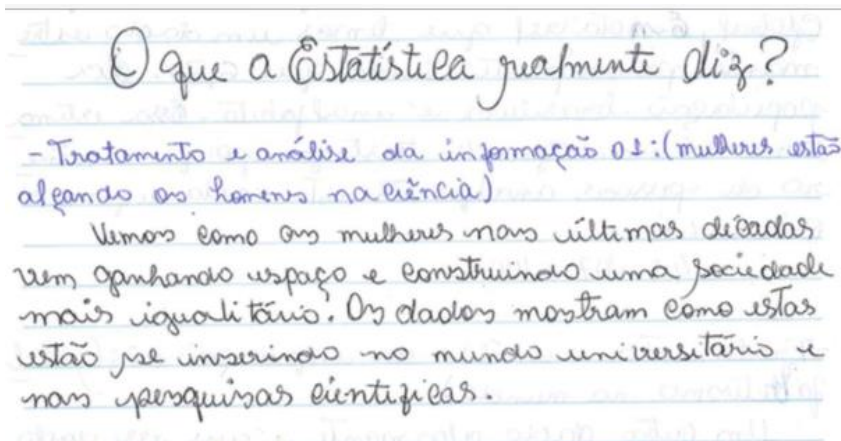 O que a Estatística realmente diz?
- Tratamento e análise da informação 01: (mulheres estão
alçando os homens na ciência)
Vemos como as mulheres nas últimas décadas
vem ganhando espaço e construindo uma sociedade
mais igualitário. Os dados mostram como estas
estão se inserindo no mundo universitário e
nas pesquisas científicas.